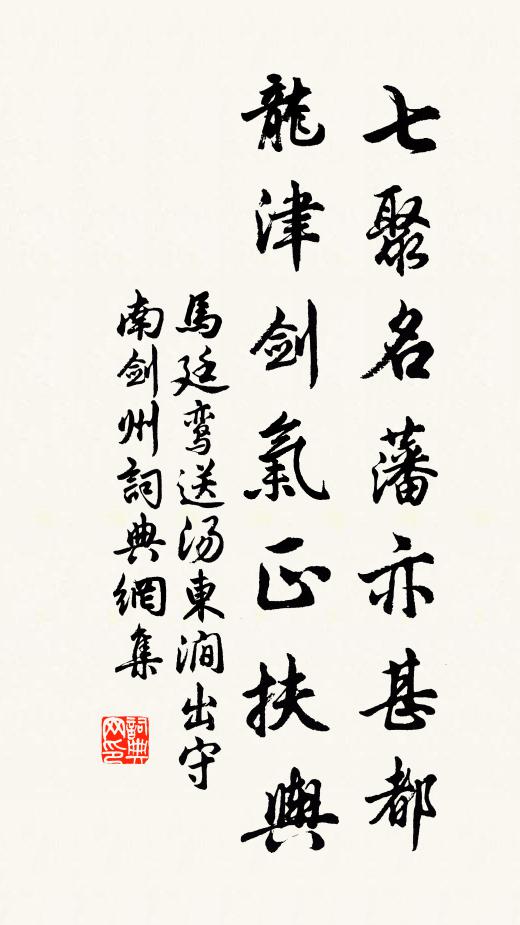 七聚名藩亦甚都
龍津劍氣正扶輿
馬廷鸾送汤東澗出守
南劍州詞典網集
詞典网印